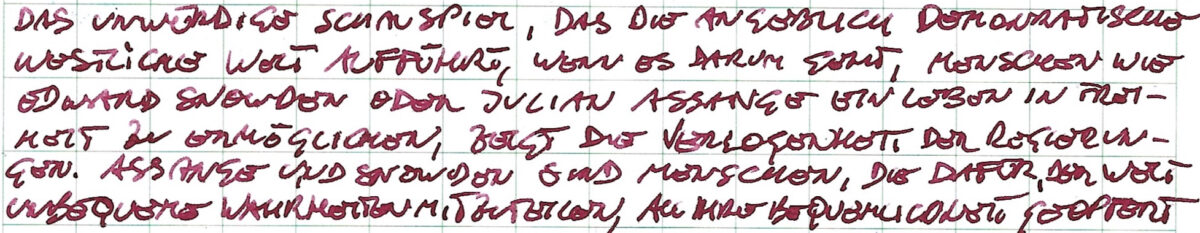 DAS UNWÜRDIGE SCHAUSPIEL, DAS DIE ANGEBLICH DEMOKRATISCHE
WESTLICHE WELT AUFFÜHRT, WENN ES DARUM GEHT, MENSCHEN WIE
EDWARD SNOWDEN ODER JULIAN ASSANGE EIN LEBEN IN FREI-
HEIT ZU ERMÖGLICHEN, ZEIGT DIE VERLOGENHEIT DER REGIERUN-
GEN. ASSANGE UND SNOWDEN SIND MENSCHEN, DIE DAFÜR, DER WELT
UNBEQUEME WAHRHEITEN MITZUTEILEN, ALL IHRE BEQUEMLICHKEIT GEOPFERT